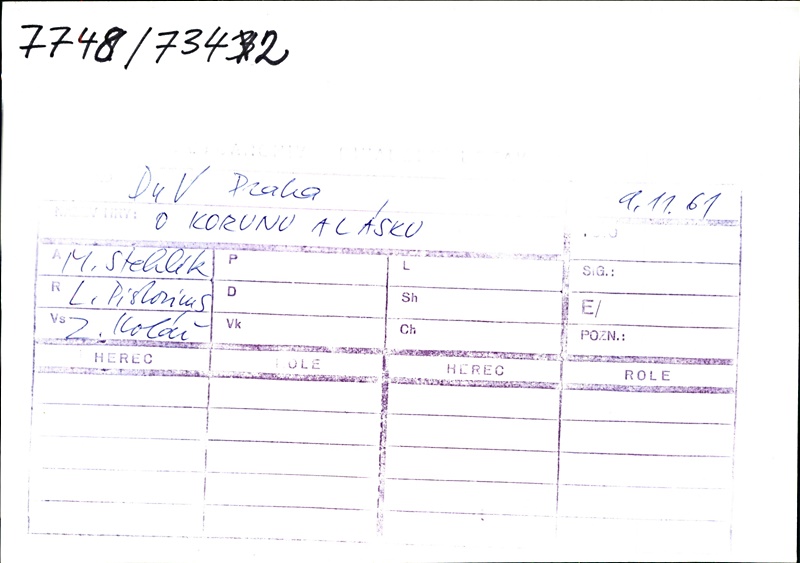 7748/73432
DuV Praha 9.11.61
O KORUNU A LÁSKU
A M. Stehlík P L SIG.:
R L. Pistorius D Sh E/
Vs Z. Kolář Vk Ch POZN.:
HEREC ROLE HEREC ROLE